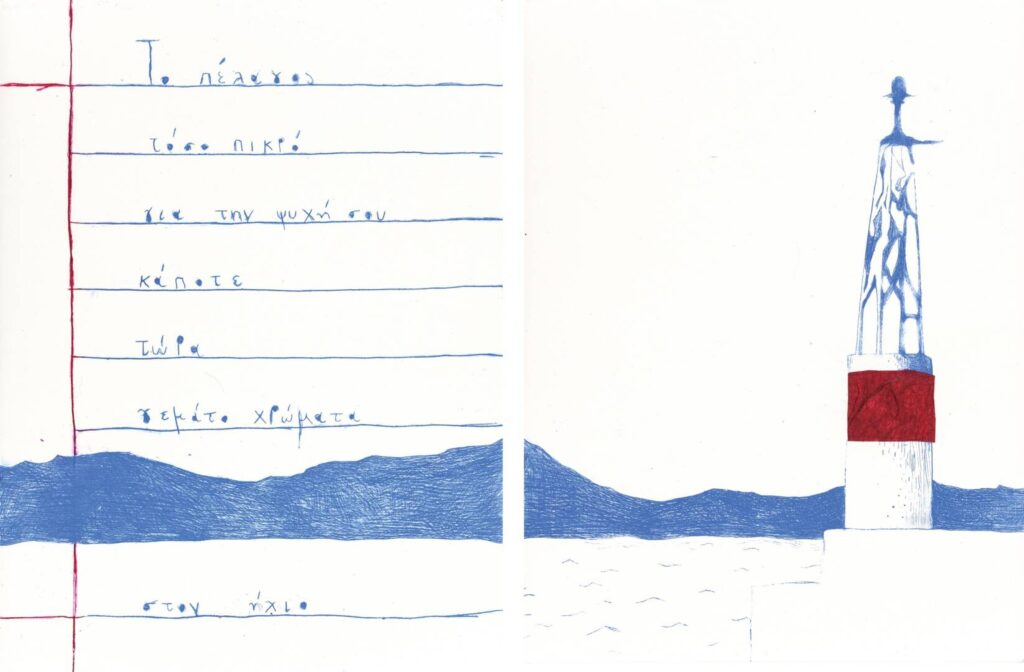 Το πέλαγος
τόσο πικρό
για την ψυχή σου
κάποτε
τώρα
γεμάτο χρώματα
στον ήλιο